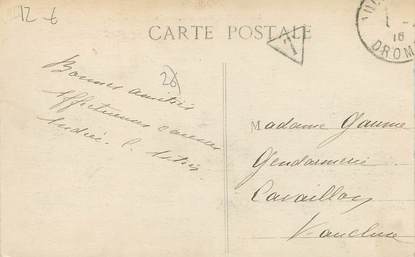 12-6
CARTE POSTALE
T
16
DROM
26
Bonnes amitiés
affectueuses
André
Madame Gaume
Gendarmerie
Cavaillon
Vaucluse